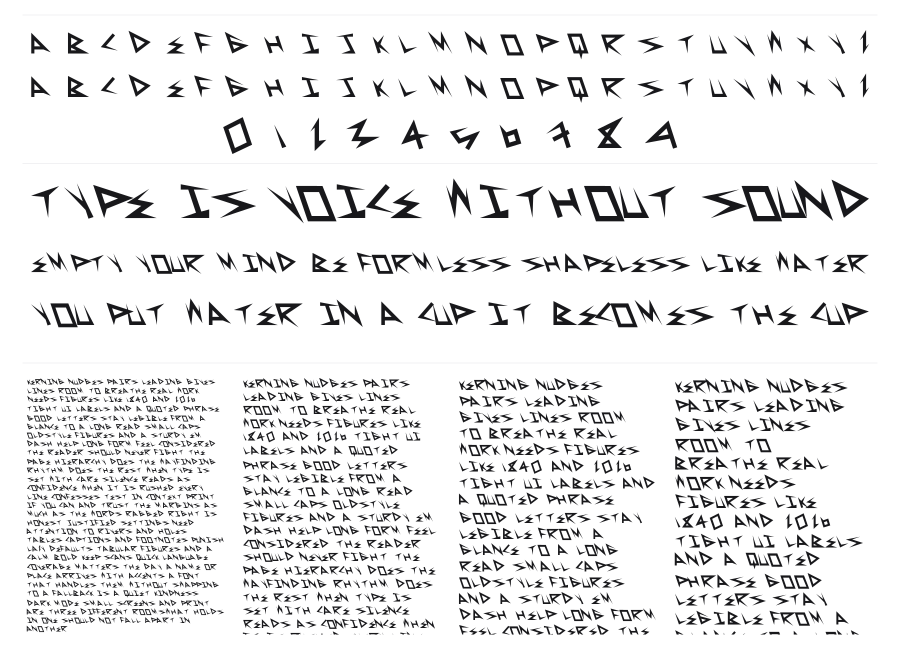 A B C D E F G H I J K L M N O P Q R S T U V W X Y Z
A B C D E F G H I J K L M N O P Q R S T U V W X Y Z
0 1 2 3 4 5 6 7 8 9
TYPE IS VOICE WITHOUT SOUND
EMPTY YOUR MIND BE FORMLESS SHAPELESS LIKE WATER
YOU PUT WATER IN A CUP IT BECOMES THE CUP
KERNING NUDGES PAIRS LEADING GIVES
LINES ROOM TO BREATHE REAL WORK
NEEDS FIGURES LIKE 1840 AND 2026
TIGHT UI LABELS AND A QUOTED PHRASE
GOOD LETTERS STAY LEGIBLE FROM A
GLANCE TO A LONG READ SMALL CAPS
OLDSTYLE FIGURES AND A STURDY EM
DASH HELP LONG FORM FEEL CONSIDERED
THE READER SHOULD NEVER FIGHT THE
PAGE HIERARCHY DOES THE WAYFINDING
RHYTHM DOES THE REST WHEN TYPE IS
SET WITH CARE SILENCE READS AS
CONFIDENCE WHEN IT IS RUSHED EVERY
LINE CONFESSES TEST IN CONTEXT PRINT
IF YOU CAN AND TRUST THE MARGINS AS
MUCH AS THE WORDS RAGGED RIGHT IS
HONEST JUSTIFIED SETTINGS NEED
ATTENTION TO RIVERS AND HOLES
TABLES CAPTIONS AND FOOTNOTES PUNISH
LAZY DEFAULTS TABULAR FIGURES AND A
CALM BOLD KEEP SCANS QUICK LANGUAGE
COVERAGE MATTERS THE DAY A NAME OR
PLACE ARRIVES WITH ACCENTS A FONT
THAT HANDLES THEM WITHOUT SNAPPING
TO A FALLBACK IS A QUIET KINDNESS
DARK MODE SMALL SCREENS AND PRINT
ARE THREE DIFFERENT ROOMS WHAT HOLDS
IN ONE SHOULD NOT FALL APART IN
ANOTHER
KERNING NUDGES PAIRS
LEADING GIVES LINES
ROOM TO BREATHE REAL
WORK NEEDS FIGURES LIKE
1840 AND 2026 TIGHT UI
LABELS AND A QUOTED
PHRASE GOOD LETTERS
STAY LEGIBLE FROM A
GLANCE TO A LONG READ
SMALL CAPS OLDSTYLE
FIGURES AND A STURDY EM
DASH HELP LONG FORM FEEL
CONSIDERED THE READER
SHOULD NEVER FIGHT THE
PAGE HIERARCHY DOES THE
WAYFINDING RHYTHM DOES
THE REST WHEN TYPE IS
SET WITH CARE SILENCE
READS AS CONFIDENCE WHEN
KERNING NUDGES
PAIRS LEADING
GIVES LINES ROOM
TO BREATHE REAL
WORK NEEDS FIGURES
LIKE 1840 AND 2026
TIGHT UI LABELS AND
A QUOTED PHRASE
GOOD LETTERS STAY
LEGIBLE FROM A
GLANCE TO A LONG
READ SMALL CAPS
OLDSTYLE FIGURES
AND A STURDY EM
DASH HELP LONG FORM
FEEL CONSIDERED THE
KERNING NUDGES
PAIRS LEADING
GIVES LINES
ROOM TO
BREATHE REAL
WORK NEEDS
FIGURES LIKE
1840 AND 2026
TIGHT UI LABELS
AND A QUOTED
PHRASE GOOD
LETTERS STAY
LEGIBLE FROM A